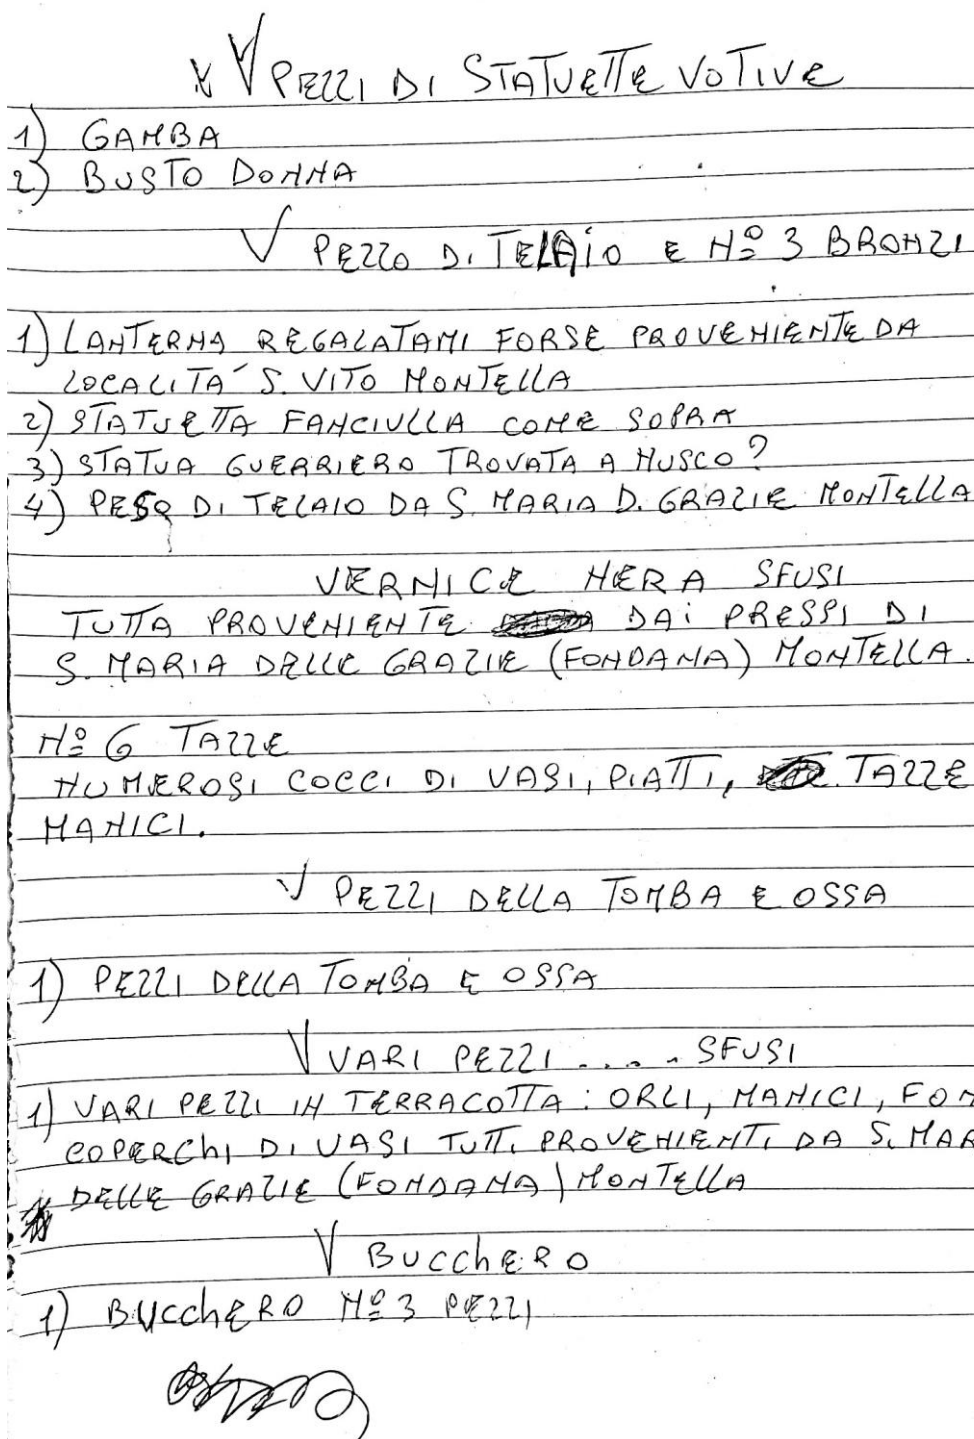 PEZZI DI STATUETTE VOTIVE
1) GAMBA
2) BUSTO DONNA
PEZZO DI TELAIO E Nº 3 BRONZI
1) LANTERNA REGALATAMI FORSE PROVENIENTE DA
LOCALITA' S. VITO MONTELLA
2) STATUETTA FANCIULLA COME SOPRA
3) STATUA GUERRIERO TROVATA A NUSCO?
4) PESO DI TELAIO DA S. MARIA D. GRAZIE MONTELLA
VERNICE NERA SFUSI
TUTTA PROVENIENTE DAI PRESSI DI
S. MARIA DELLE GRAZIE (FONDANA) MONTELLA.
Nº 6 TAZZE
NUMEROSI COCCI DI VASI, PIATTI, TAZZE
MANICI.
PEZZI DELLA TOMBA E OSSA
1) PEZZI DELLA TOMBA E OSSA
VARI PEZZI .... SFUSI
1) VARI PEZZI IN TERRACOTTA: ORLI, MANICI, FON
COPERCHI DI VASI TUTTI PROVENIENTI DA S. MAR
DELLE GRAZIE (FONDANA) MONTELLA
BUCCHERO
1) BUCCHERO Nº 3 PEZZI